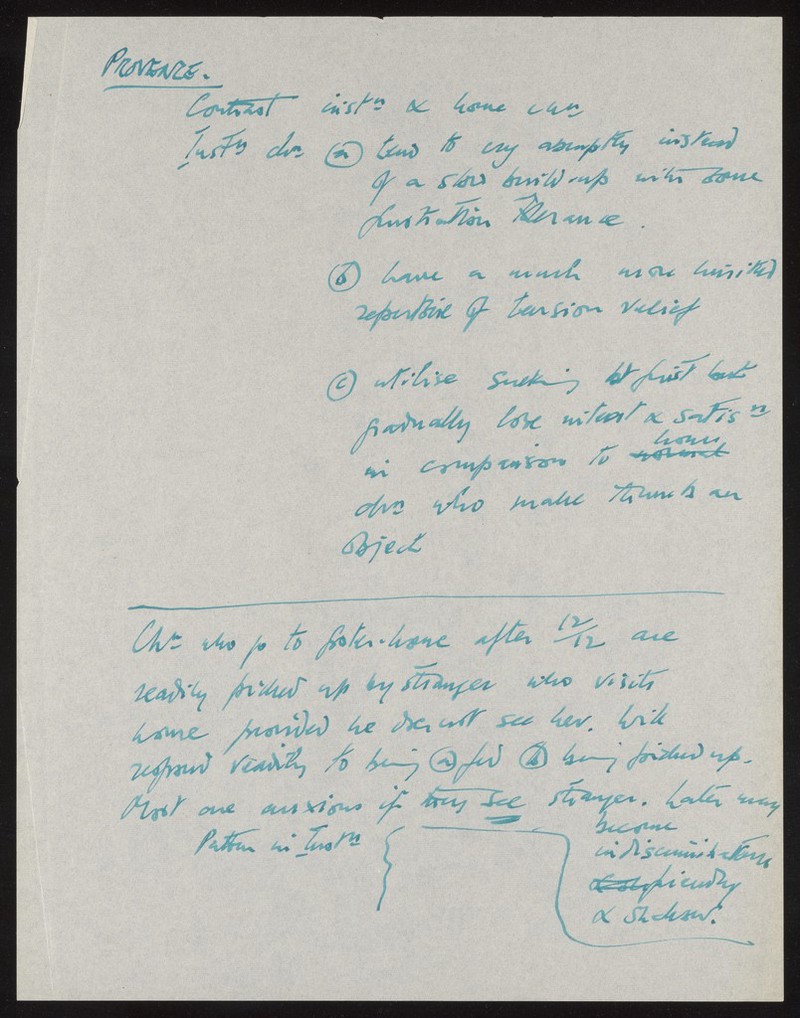 PROVENCE.
Contrast instn & home chn
Instn chn (a) tend to cry abruptly instead
of a slow build-up with some
frustration tolerance.
(b) have a much more limited
repertoire of tension relief
(c) utilise sucking at first but
gradually lose interest & satisn
in comparison to normal home
chn who make thumb an
object
Chn who go to foster-home after 12/12 are
readily picked up by stranger who visits
home provided he does not see her. Will
respond readily to being (a) fed (b) being picked up.
Most are anxious if they see stranger. Later may
become
indiscriminately
friendly
&
Pattern in Instn